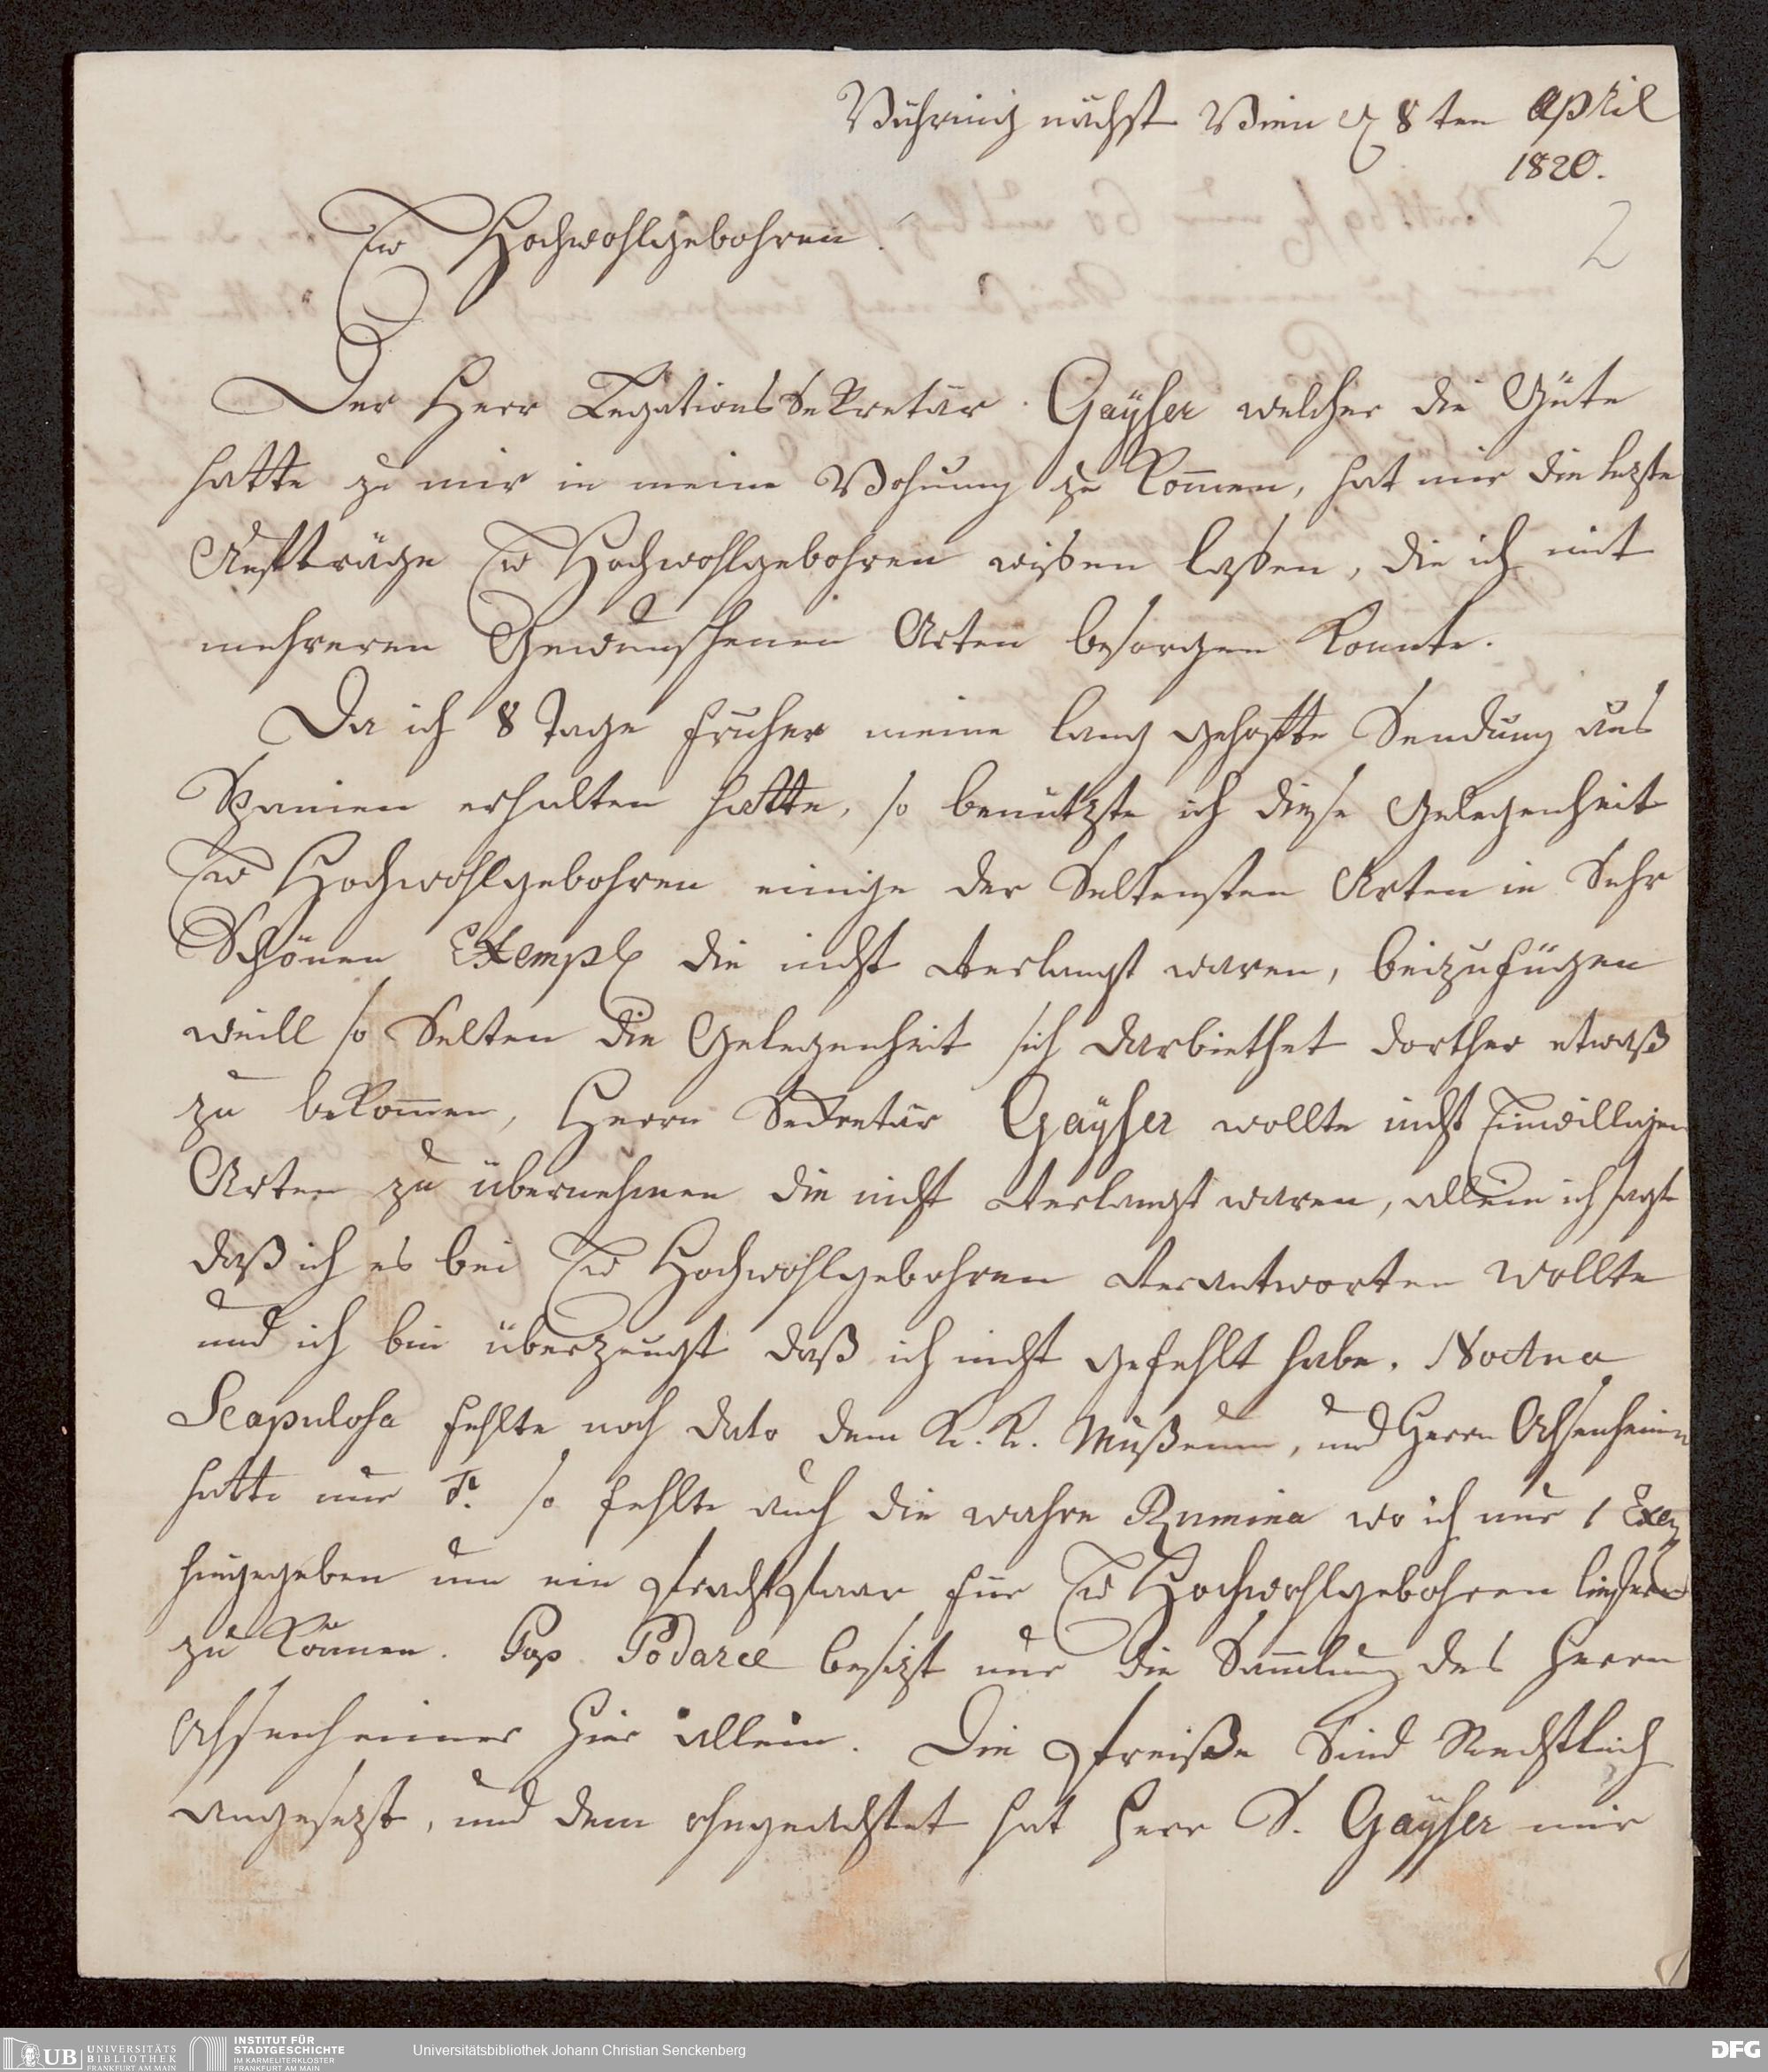 Währing nächst Wien d 8ten April
1820.
2
Ew Hochwohlgebohren.
Der Herr LegationsSekretär Gayser welcher die Güte
hatte zu mir in meine Wohnung zu kom̅en, hat mir die lezte
Aufträge Ew Hochwohlgebohren wißen laßen, die ich mit
mehreren Gewunschenen Arten besorgen konnte.
Da ich 8 Tage fruher meine lang gehoffte Sendung aus
Spanien erhalten hatte, so benützte ich diese Gelegenheit
Ew Hochwohlgebohren einige der Seltensten Arten in Sehr
Schönen Exempl die nicht Verlangt waren, beizufügen
weill so Selten die Gelegenheit sich darbiethet dorther etwaß
zu bekom̅en, Herrn Sekretär Gayser wollte nicht Einwilligen
Arten zu übernehmen die nicht Verlangt waren, allein ich sagte
daß ich es bei Ew Hochwohlgebohren Verantworten wollte
und ich bin überzeugt daß ich nicht gefehlt habe. Noctua
Scapulosa fehlte noch dato dem K. K. Mußeum, und Herrn Ochsenheimer
hatte nur so fehlte auch die wahre Rumina wo ich nur 1 Exem
hingegeben um ein prachtpaar für Ew Hochwohlgebohren liefern
zu können. Pap. Podarce besizt nur die Sam̅lung des Herrn
Ochsenheimer hier allein. Die Preiße Sind Rechtlich
angesezt, und dem ohngeachtet hat Herr S. Gayser mir
UB UNIVERSITÄTS
BIBLIOTHEK
FRANKFURT AM MAIN
INSTITUT FÜR
STADTGESCHICHTE
IM KARMELITERKLOSTER
FRANKFURT AM MAIN
Universitätsbibliothek Johann Christian Senckenberg
DFG